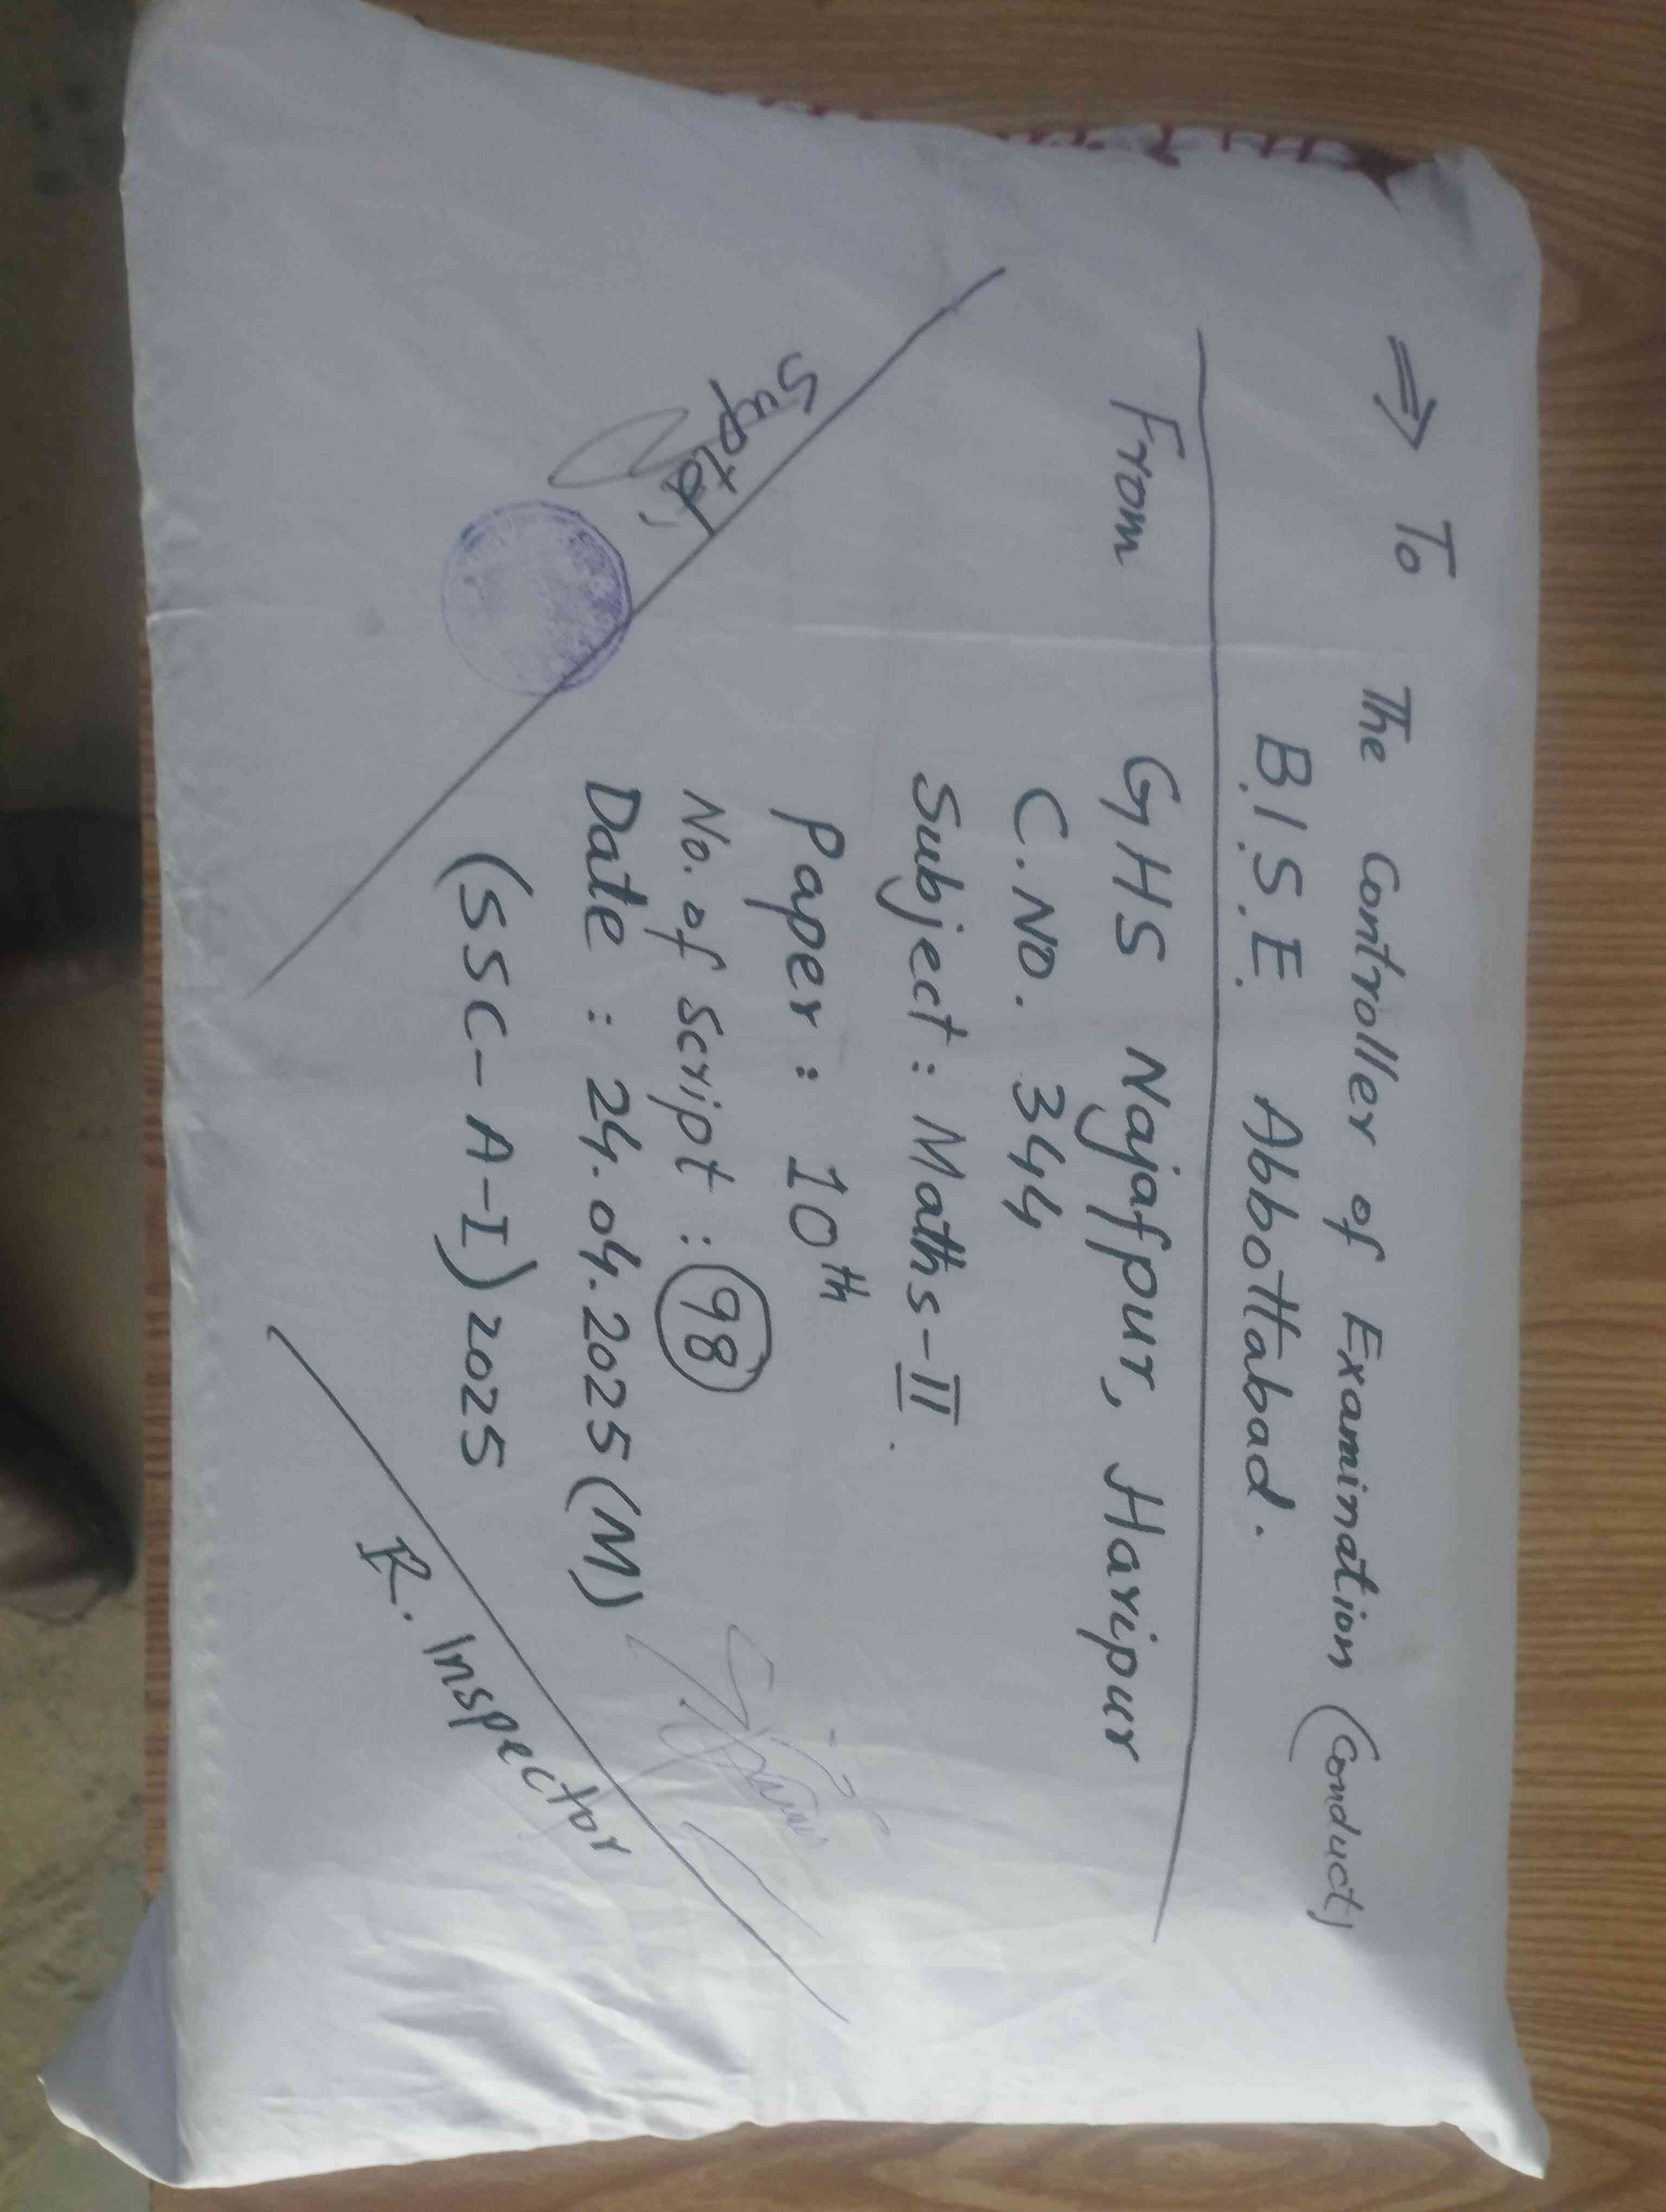 ⇒ To The Controller of Examination (Conduct)
B.I.S.E. Abbottabad.
From GHS Najafpur, Haripur
C.No. 344
Subject: Maths-II.
Paper: 10th
No. of Script: 98
Date: 24.04.2025(M)
(SSC-A-I) 2025
Suptd,
R. Inspector